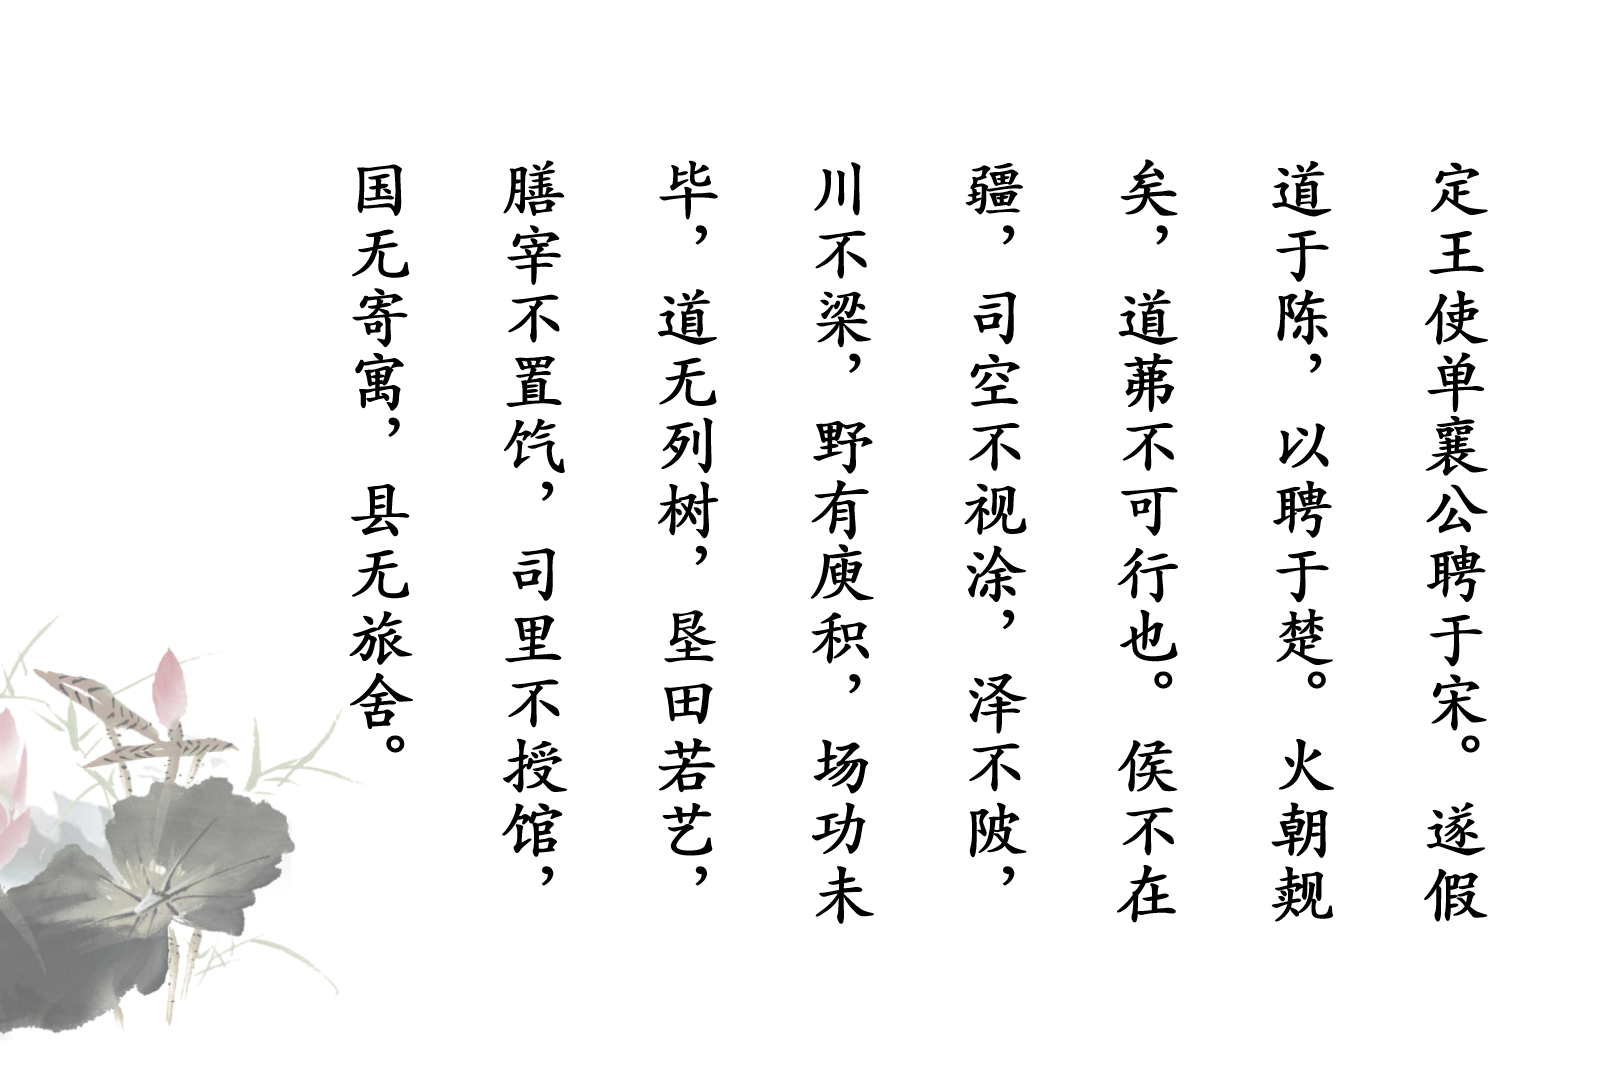 定王使单襄公聘于宋。遂假
道于陈，以聘于楚。火朝觌
矣，道茀不可行也。侯不在
疆，司空不视涂，泽不陂，
川不梁，野有庾积，场功未
毕，道无列树，垦田若艺，
膳宰不置饩，司里不授馆，
国无寄寓，县无旅舍。